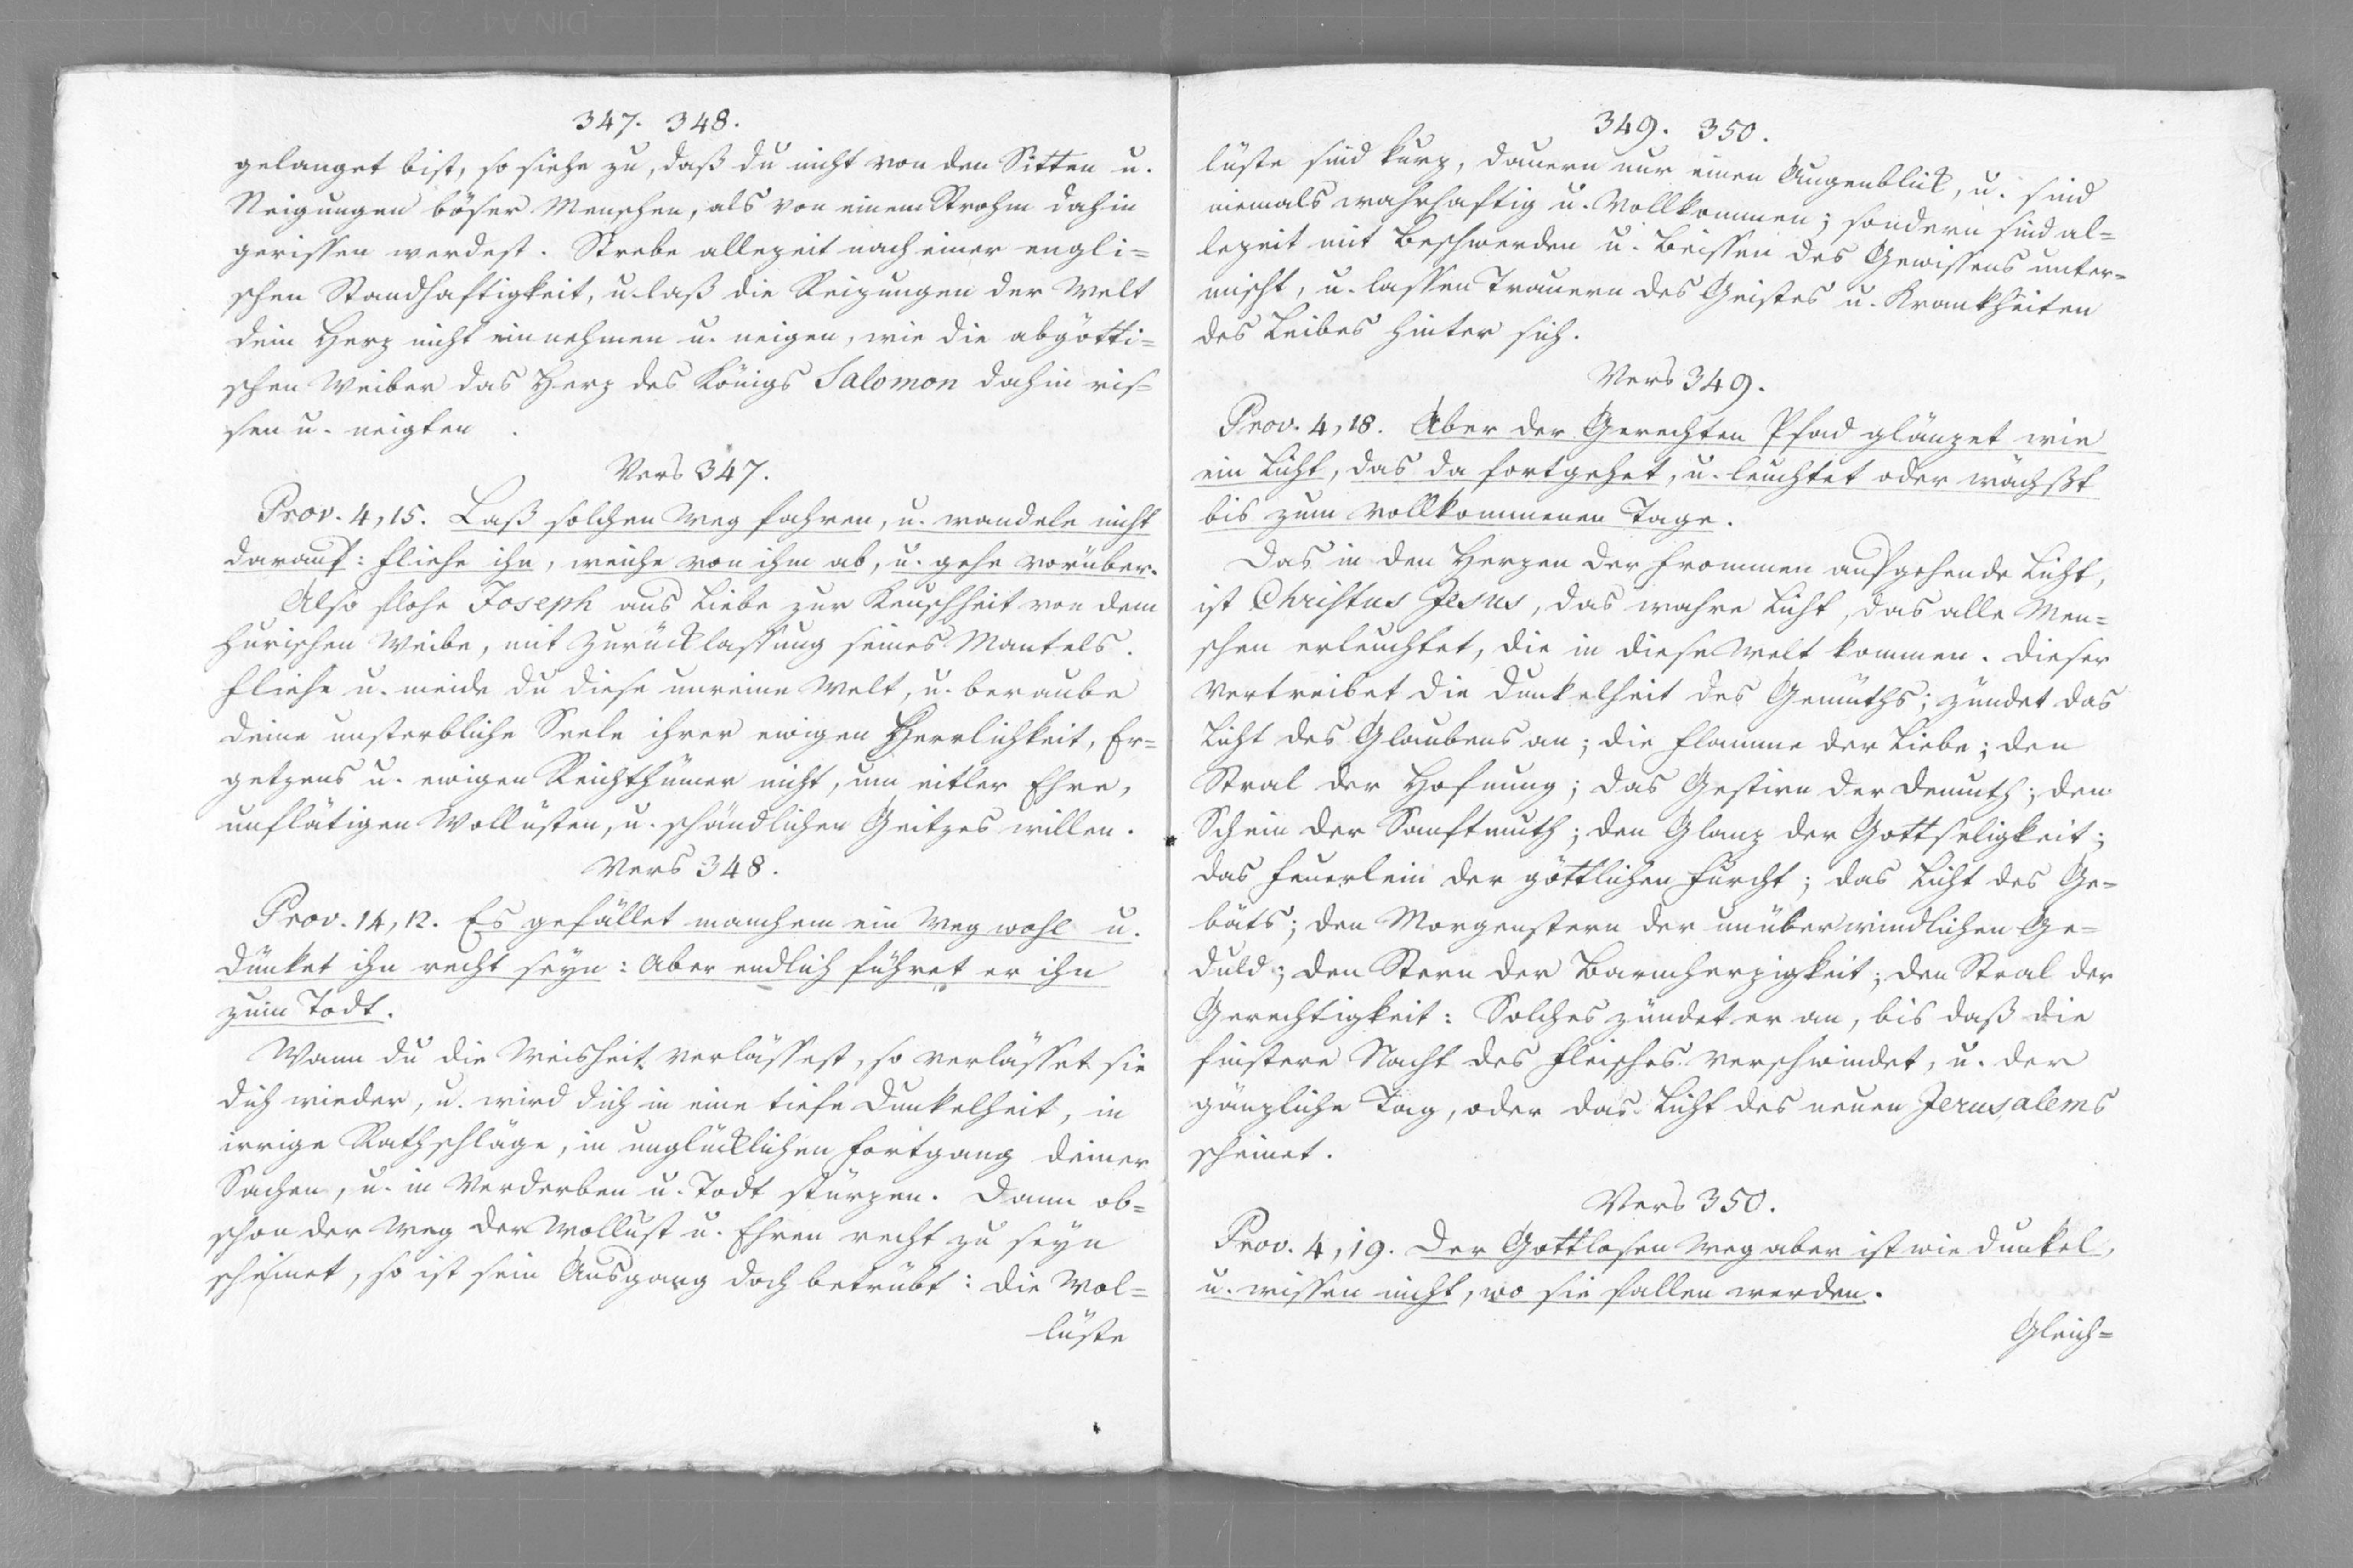 347. 348.
gelanget bist, so siehe zu, daß du nicht von den Sitten u.
Neigungen böser Menschen, als von einem Strohm dahin
gerissen werdest. Strebe allezeit nach einer engli=
schen Standhaftigkeit, u. laß die Reizungen der Welt
dein Herz nicht einnehmen u. neigen, wie die abgötti=
schen Weiber das Herz des Königs Salomon dahin ris=
sen u. neigten.
Vers 347.
Prov. 4, 15. Laß solchen Weg fahren, u. wandele nicht
darauf: fliehe ihn, weiche von ihm ab, u. gehe vorüber.
Also flohe Joseph aus Liebe zur Keuschheit von dem
hurischen Weibe, mit Zurücklassung seines Mantels.
Fliehe u. meide du diese unreine Welt, u. beraube
deine unsterbliche Seele ihrer ewigen Herrlichkeit, Er=
getzens u. ewigen Reichthümer nicht, um eitler Ehre,
unflätigen Wollüsten, u. schändlichen Geitzes willen.
Vers 348.
Prov. 14, 12. Es gefället manchem ein Weg wohl u.
dünket ihn recht seyn: Aber endlich führet er ihn
zum Todt.
Wann du die Weisheit verlässest, so verlässet sie
dich wieder, u. wird dich in eine tiefe Dunkelheit, in
irrige Rathschläge, in unglücklichen Fortgang deiner
Sachen, u. in Verderben u. Todt stürzen. Dann ob=
schon der Weg der Wollust u. Ehren recht zu seyn
scheinet, so ist sein Ausgang doch betrübt: die Wol=
lüste
349. 350.
lüste sind kurz, dauern nur einen Augenblick, u. sind
niemals wahrhaftig u. vollkommen; sondern sind al=
lezeit mit Beschwerden u. Beissen des Gewissens unter=
mischt, u. lassen Trauern des Geistes u. Krankheiten
des Leibes hinter sich.
Vers 349.
Prov. 4, 18. Aber der Gerechten Pfad glänzet wie
ein Licht, das da fortgehet, u. leuchtet oder wächßt
bis zum vollkommenen Tage.
Das in den Herzen der Frommen aufgehende Licht,
ist Christus Jesus, das wahre Licht, das alle Men=
schen erleuchtet, die in diese Welt kommen. Dieser
vertreibet die Dunkelheit des Gemüths; zündet das
Licht des Glaubens an; die Flamme der Liebe; den
Stral der Hofnung; das Gestirn der Demuth; den
Schein der Sanftmuth; den Glanz der Gottseligkeit;
das Feuerlein der göttlichen Furcht; das Licht des Ge=
bäts; den Morgenstern der unüberwindlichen Ge=
duld; den Stern der Barmherzigkeit; den Stral der
Gerechtigkeit: Solches zündet er an, bis daß die
finstere Nacht des Fleisches verschwindet, u. der
gänzliche Tag, oder das Licht des neuen Jerusalems
scheinet.
Vers 350.
Prov. 4, 19. Der Gottlosen Weg aber ist wie Dunkel,
u. wissen nicht, wo sie fallen werden.
Gleich=